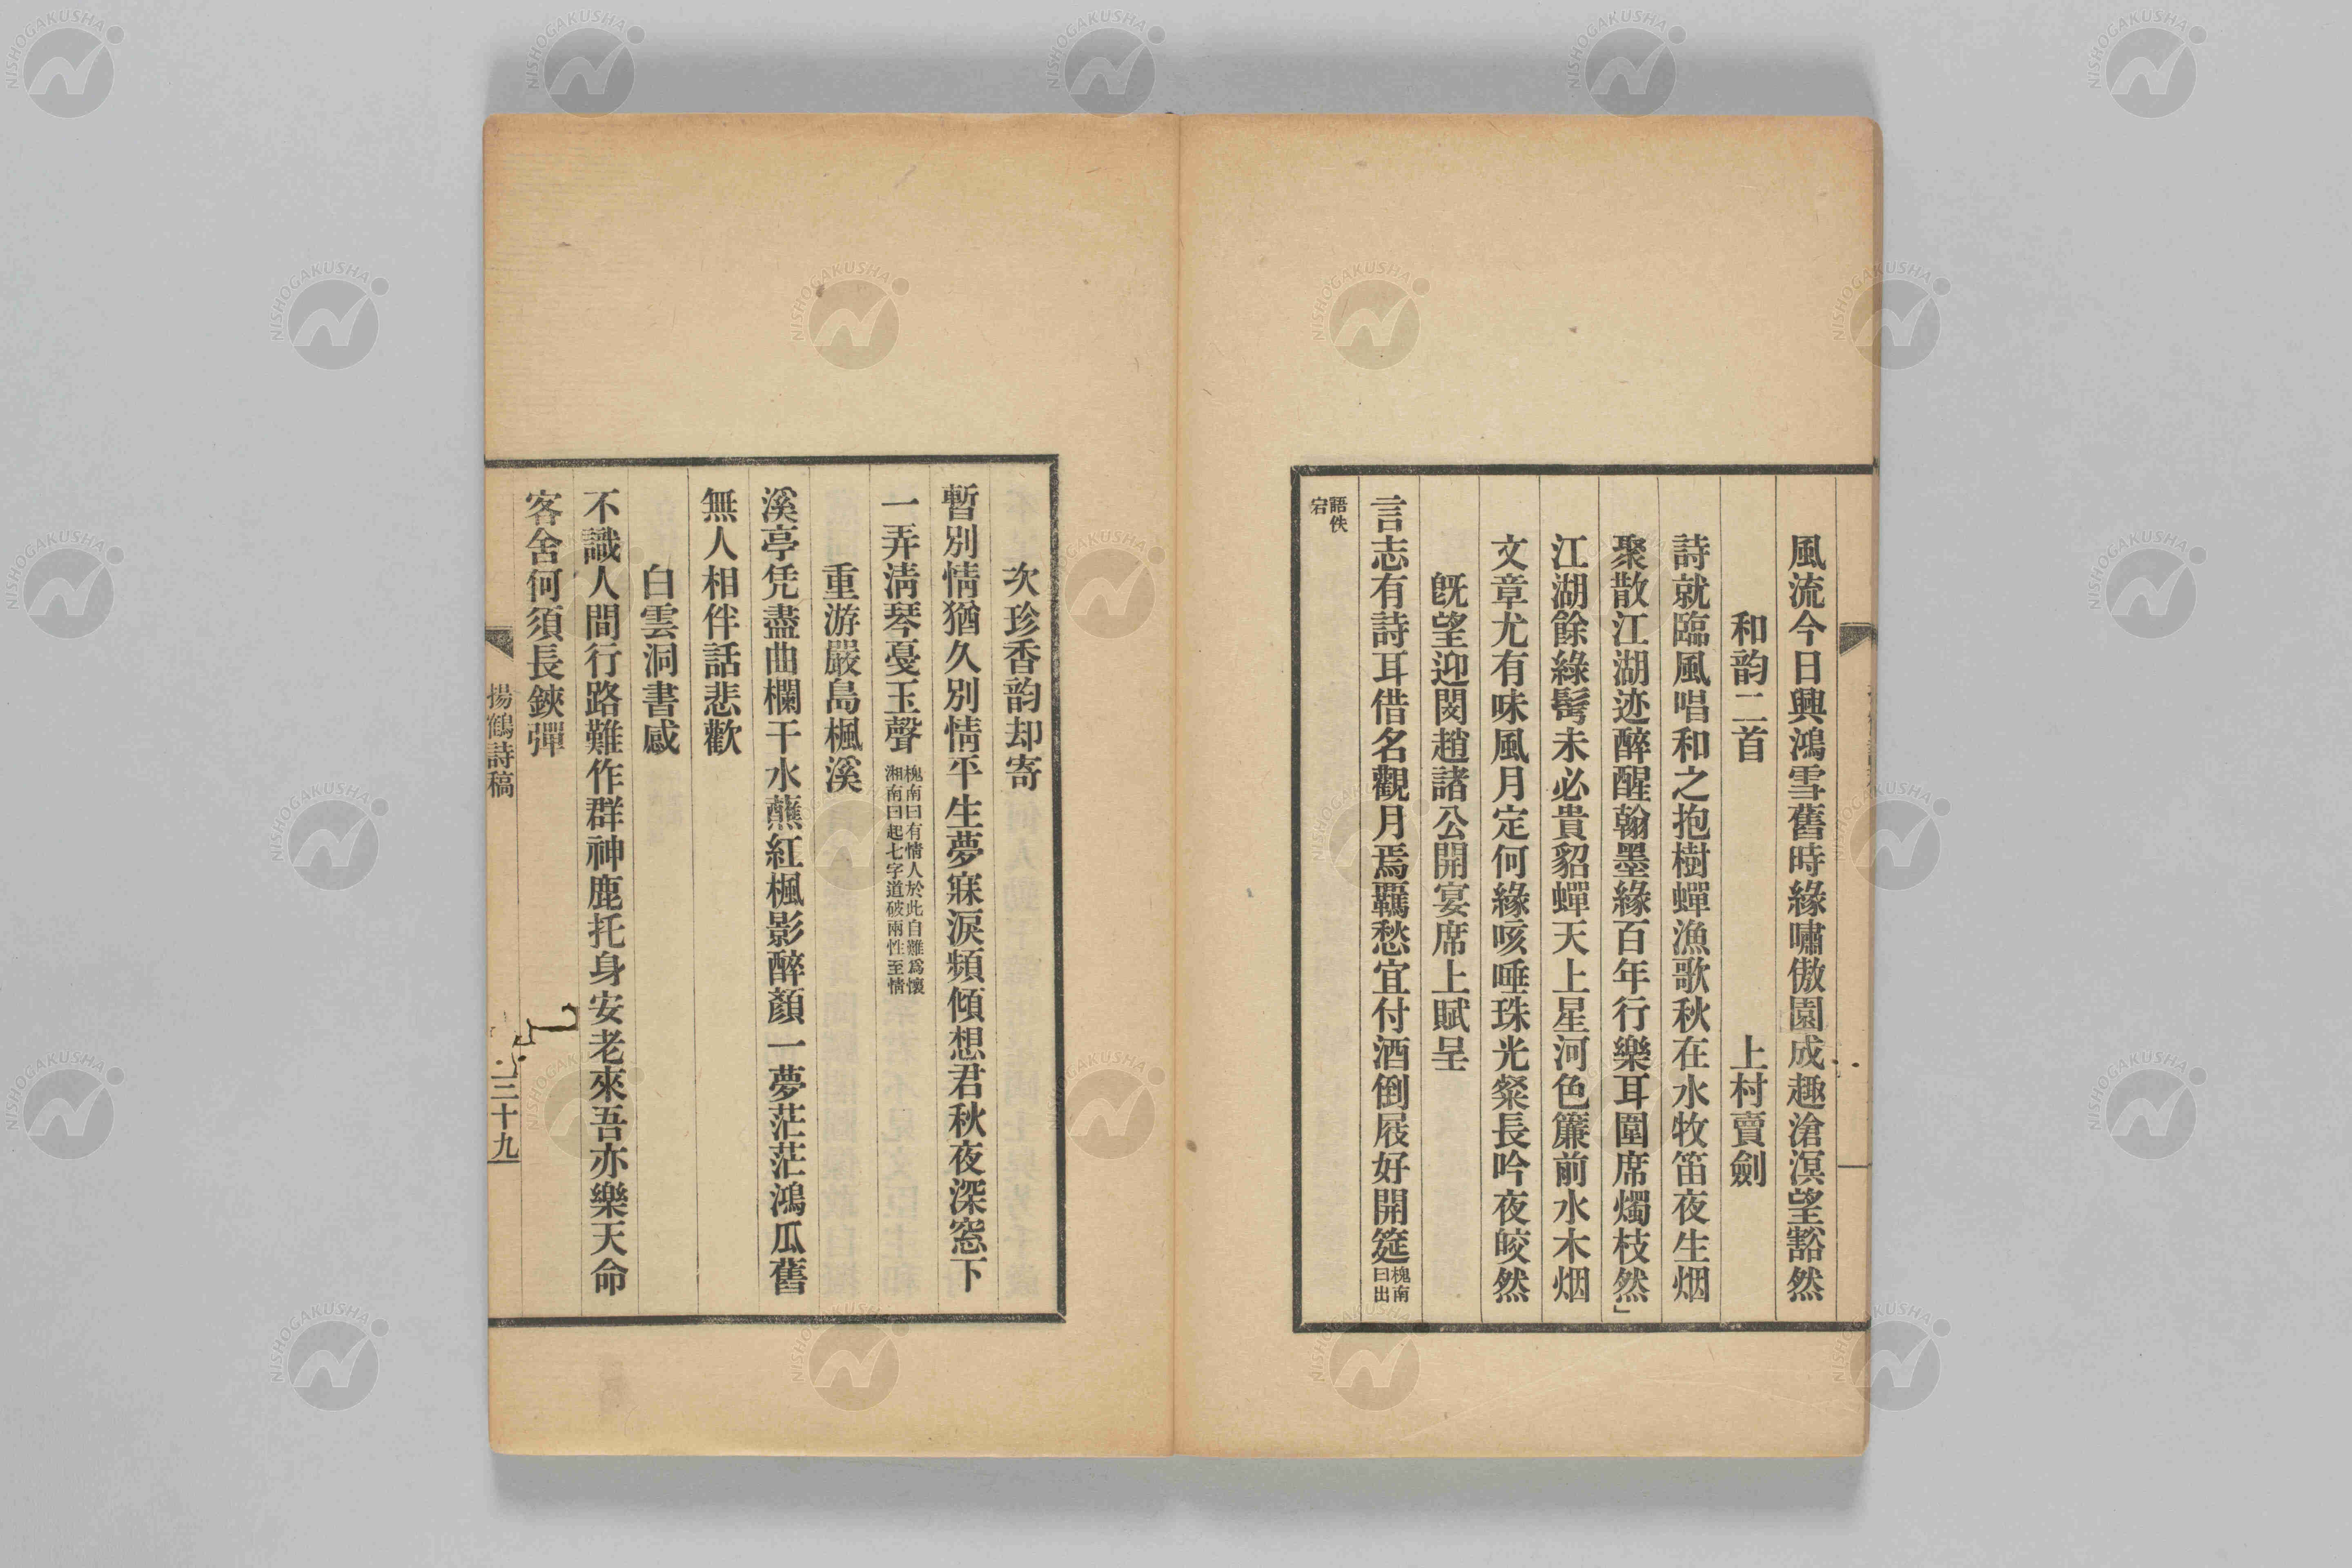 風流今日興鴻雪舊時緣嘯傲園成趣滄溟望豁然
和韵二首　上村賣劍
詩就臨風唱和之抱樹蟬漁歌秋在水牧笛夜生烟
聚散江湖迹醉醒翰墨緣百年行樂耳圍席燭枝然」
江湖餘綠髩未必貴貂蟬天上星河色簾前水木烟
文章尤有味風月定何緣咳唾珠光粲長吟夜皎然
旣望迎閔趙諸公開宴席上賦呈
言志有詩耳借名觀月焉羈愁宜付酒倒屐好開筵槐南曰出
語佚宕
次珍香韵却寄
暫別情猶久別情平生夢寐淚頻傾想君秋夜深窓下
一弄淸琴戞玉聲槐南曰有情人於此自難爲懷
湘南曰起七字道破兩性至情
重游嚴島楓溪
溪亭凭盡曲欄干水蘸紅楓影醉顏一夢茫茫鴻瓜舊
無人相伴話悲歡
白雲洞書感
不識人間行路難作群神鹿托身安老來吾亦樂天命
客舍何須長鋏彈
揚鶴詩稿
三十九
NISHOGAKUSHA